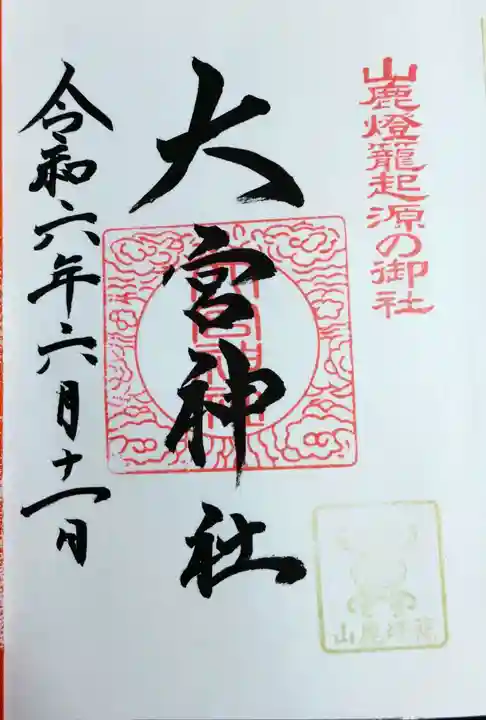 山鹿燈籠起源の御社
大宮神社
大宮神社
令和六年六月十一日
山鹿燈籠